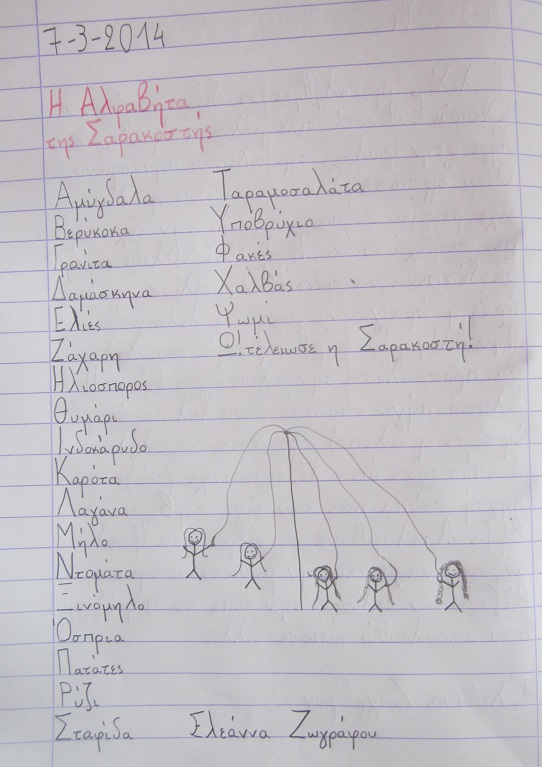 7-3-2014
Η Αλφαβήτα
της Σαρακοστής
Αμύγδαλα
Βερύκοκα
Γρανίτα
Δαμάσκηνα
Ελιές
Ζάχαρη
Ηλιοσπορος
Θυμάρι
Ινδοκάρυδο
Καρότα
Λαγάνα
Μήλο
Ντομάτα
Ξινόμηλο
Όσπρια
Πατάτες
Ρύζι
Σταφίδα
Ταραμοσαλάτα
Υποβρύχιο
Φακές
Χαλβάς
Ψωμί
Ω! τέλειωσε η Σαρακοστή!
Ελεάννα Ζωγράφου